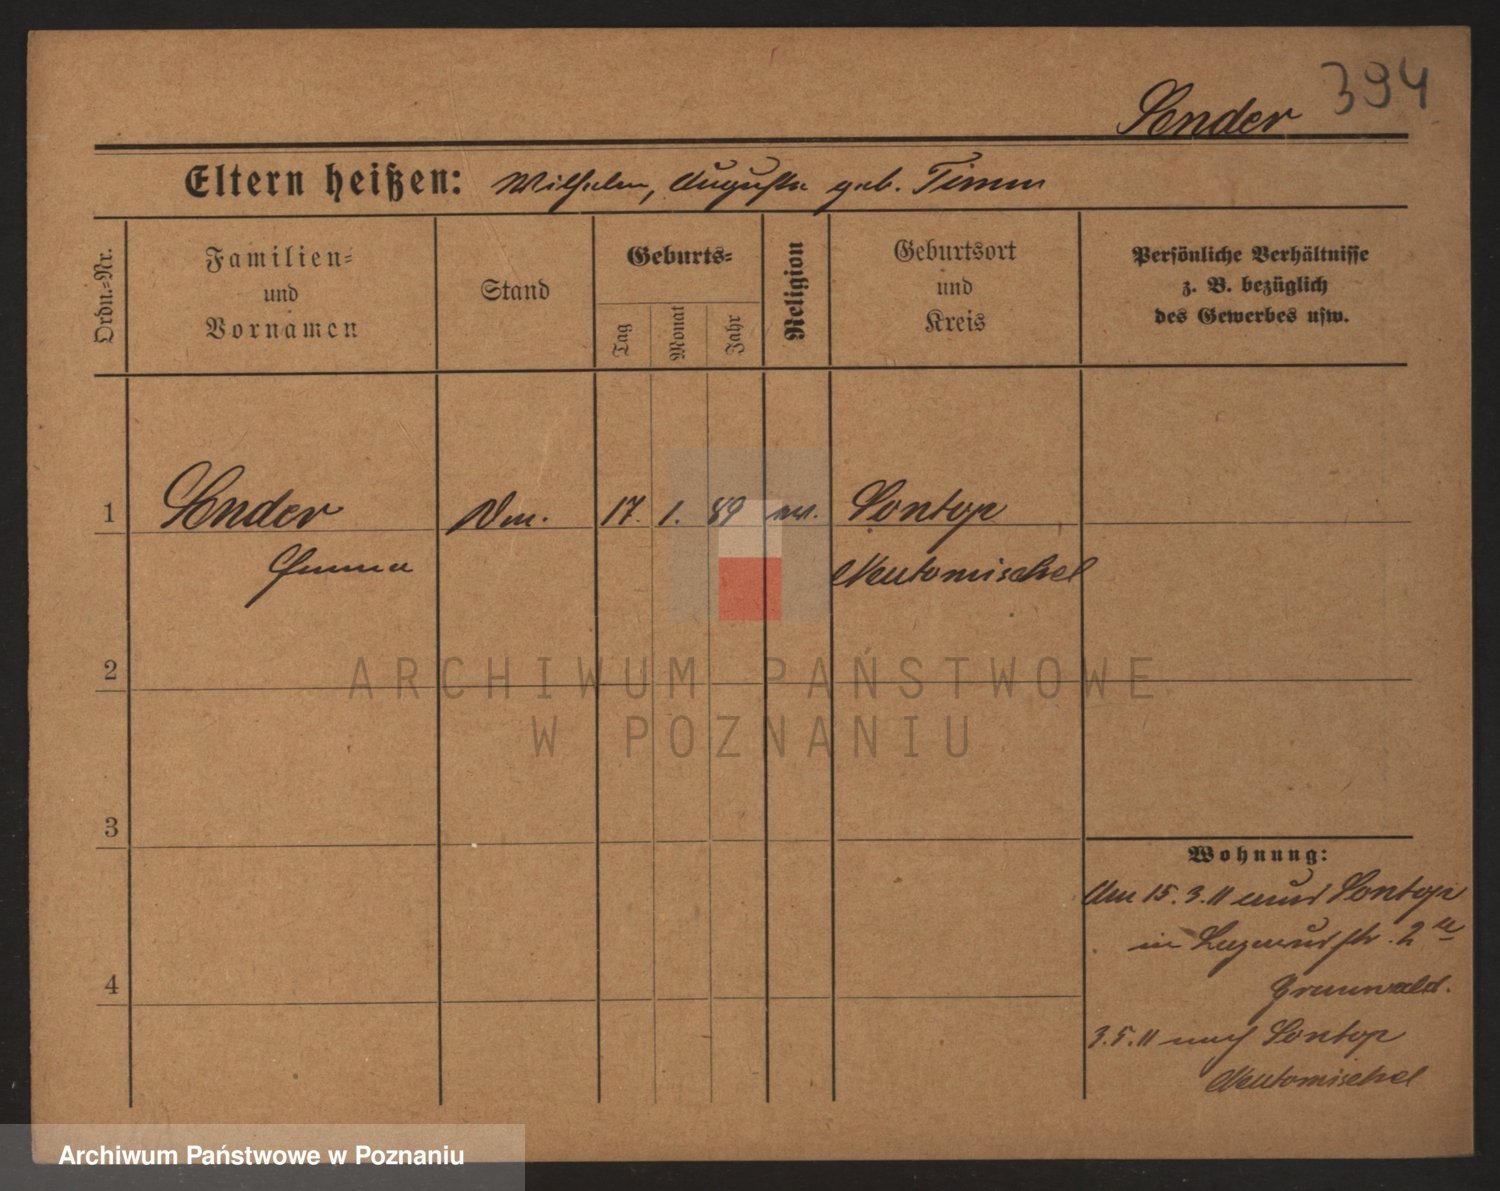 394
Sender
Eltern heißen: Wilhelm, Auguste geb. Timm
Ordn.=Nr.
Familien=
und
Vornamen
Stand
Geburts=
Tag
Monat
Jahr
Religion
Geburtsort
und
Kreis
Persönliche Verhältnisse
z. B. bezüglich
des Gewerbes usw.
1 Sender 17. 1. 89 ev. Sontop
Emma Neutomischel
2
3
4
Wohnung:
Am 15.3.11 aus Sontop
in 2
Grunwald.
3.5.11 nach Sontop
Neutomischel
ARCHIWUM PAŃSTWOWE
W POZNANIU
Archiwum Państwowe w Poznaniu